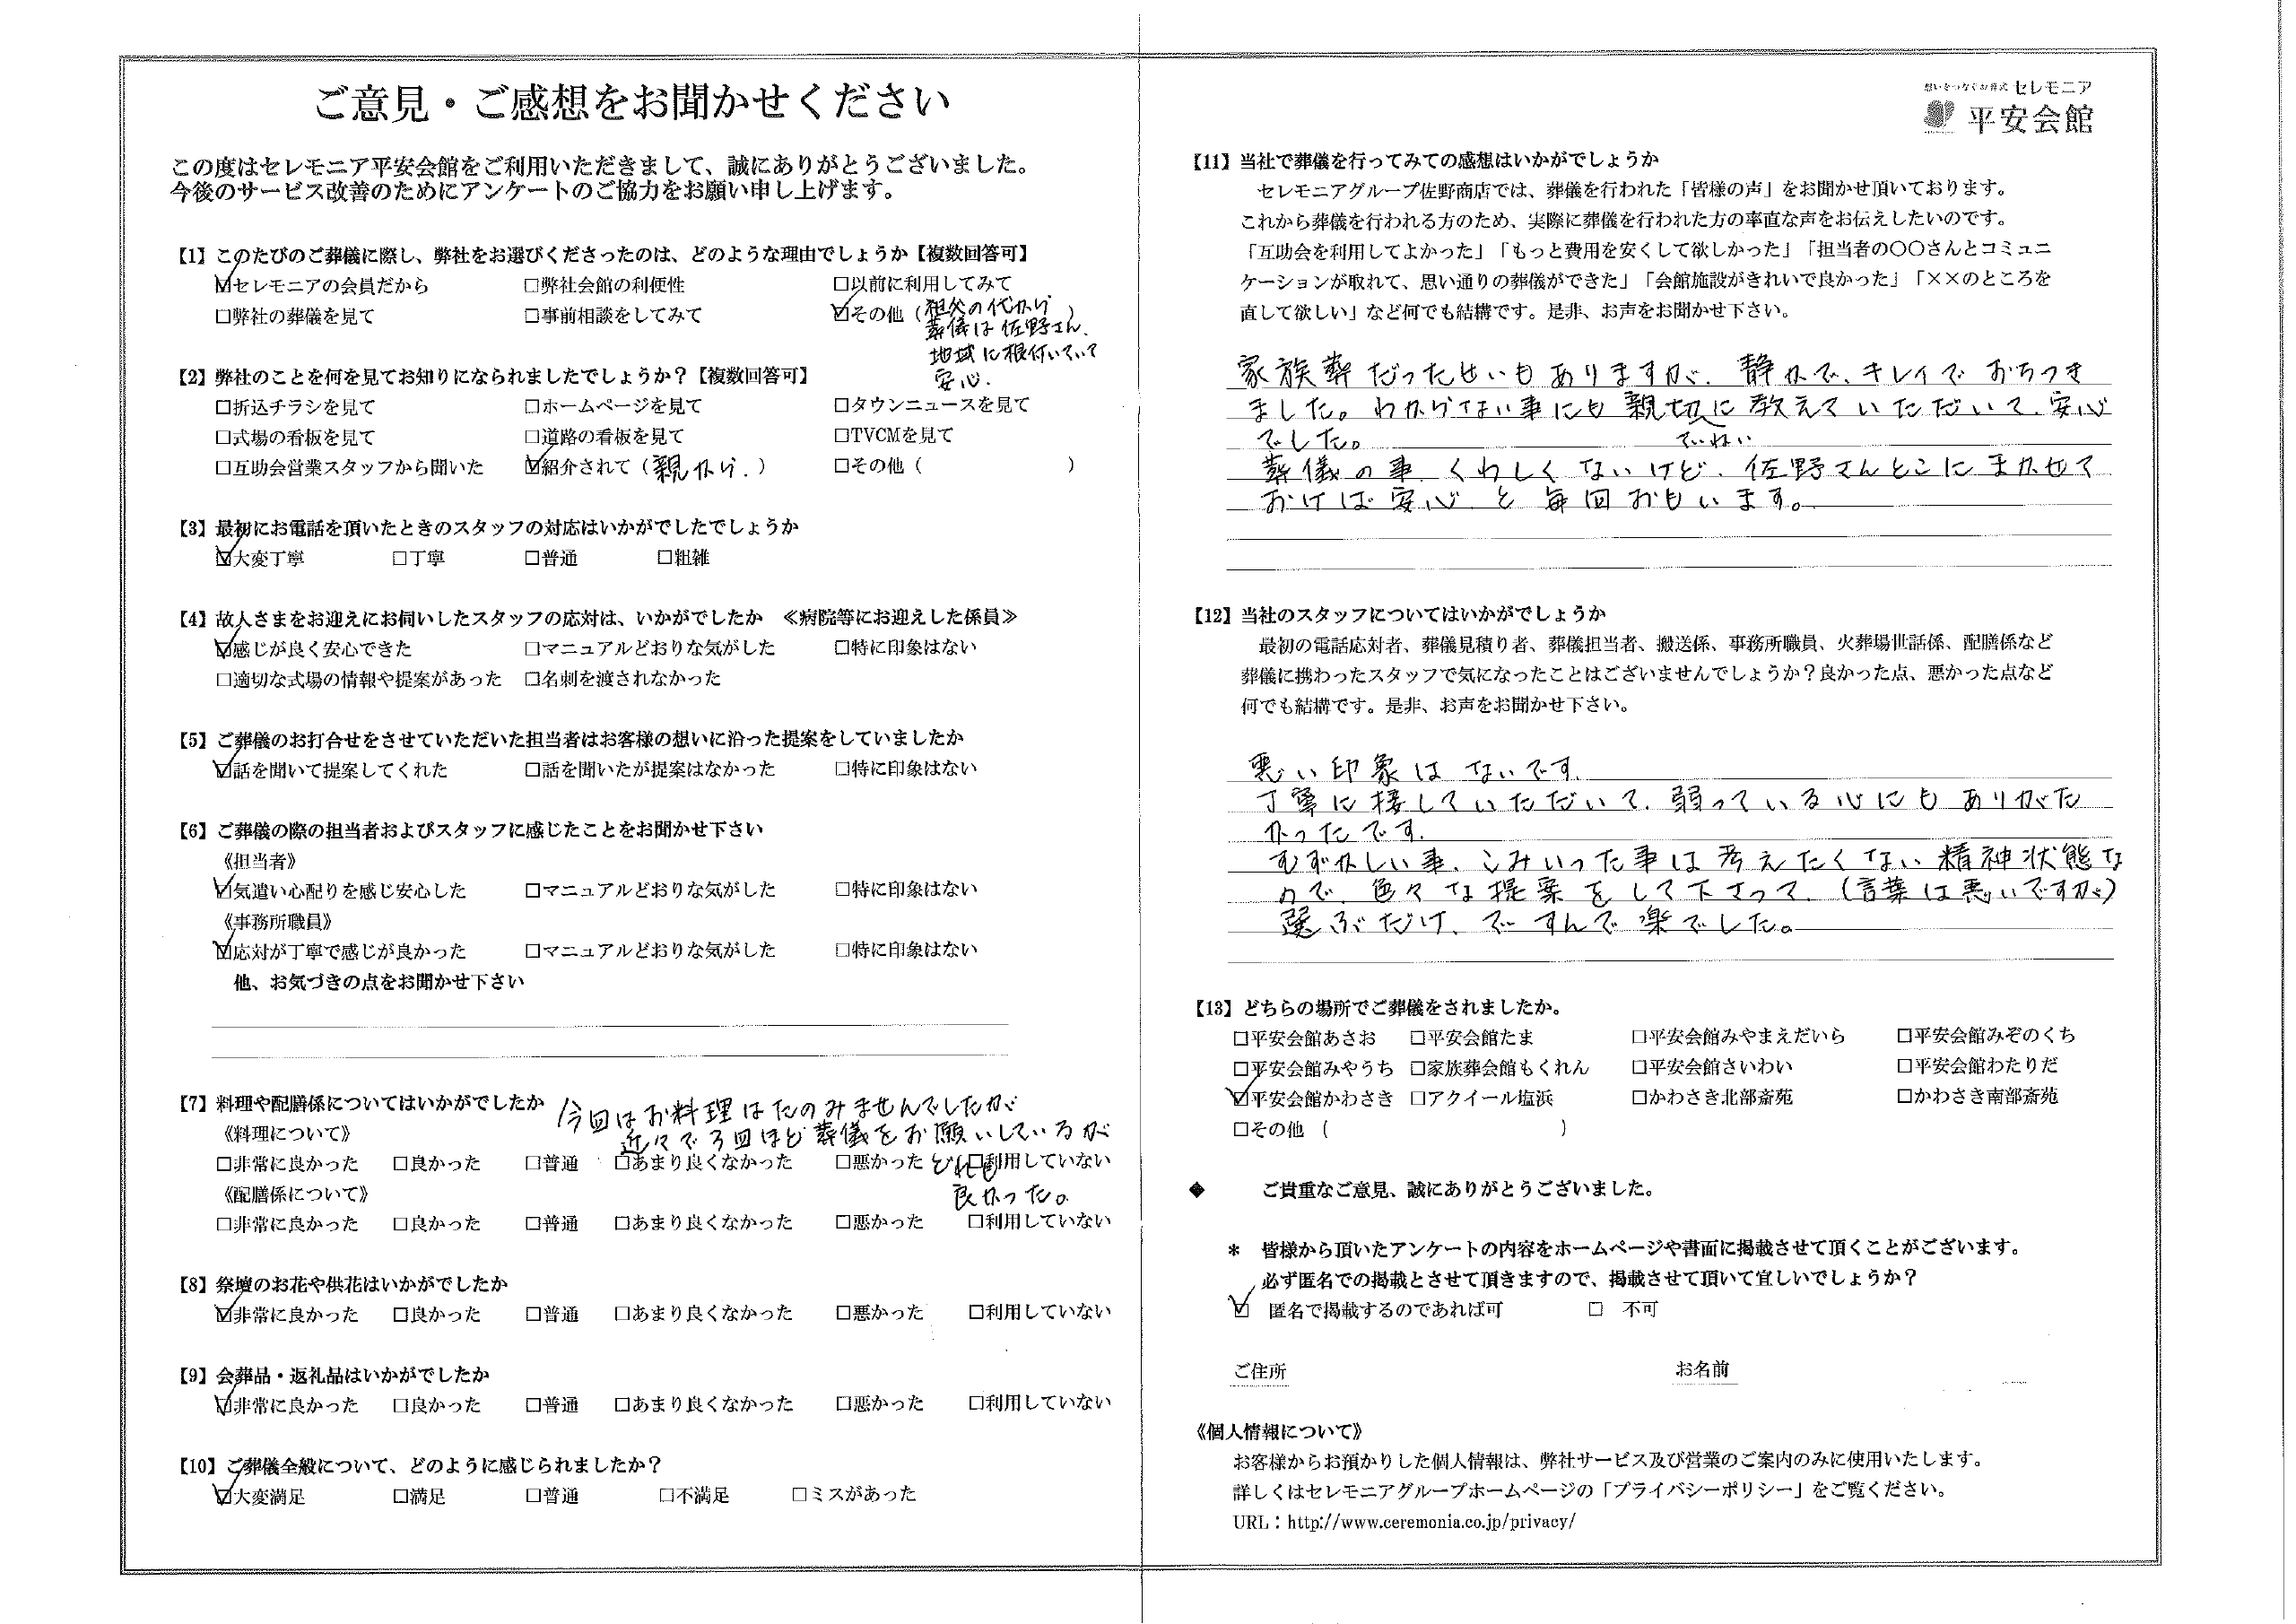 ご意見・ご感想をお聞かせください
この度はセレモニア平安会館をご利用いただきまして、誠にありがとうございました。
今後のサービス改善のためにアンケートのご協力をお願い申し上げます。
【1】このたびのご葬儀に際し、弊社をお選びくださったのは、どのような理由でしょうか【複数回答可】
☑セレモニアの会員だから □弊社会館の利便性 □以前に利用してみて
□弊社の葬儀を見て □事前相談をしてみて ☑その他（祖父の代から）
葬儀は佐野さん、
地域に根付いていて
安心.
【2】弊社のことを何を見てお知りになられましたでしょうか？【複数回答可】
□折込チラシを見て □ホームページを見て □タウンニュースを見て
□式場の看板を見て □道路の看板を見て □TVCMを見て
□互助会営業スタッフから聞いた ☑紹介されて（親から.） □その他（ ）
【3】最初にお電話を頂いたときのスタッフの対応はいかがでしたでしょうか
☑大変丁寧 □丁寧 □普通 □粗雑
【4】故人さまをお迎えにお伺いしたスタッフの応対は、いかがでしたか ≪病院等にお迎えした係員≫
☑感じが良く安心できた □マニュアルどおりな気がした □特に印象はない
□適切な式場の情報や提案があった □名刺を渡されなかった
【5】ご葬儀のお打合せをさせていただいた担当者はお客様の想いに沿った提案をしていましたか
☑話を聞いて提案してくれた □話を聞いたが提案はなかった □特に印象はない
【6】ご葬儀の際の担当者およびスタッフに感じたことをお聞かせ下さい
《担当者》
☑気遣い心配りを感じ安心した □マニュアルどおりな気がした □特に印象はない
《事務所職員》
☑応対が丁寧で感じが良かった □マニュアルどおりな気がした □特に印象はない
他、お気づきの点をお聞かせ下さい
【7】料理や配膳係についてはいかがでしたか 今回はお料理はたのみませんでしたが
《料理について》 近々で3回ほど葬儀をお願いしているが
□非常に良かった □良かった □普通 □あまり良くなかった □悪かった どれも □利用していない
《配膳係について》 良かった。
□非常に良かった □良かった □普通 □あまり良くなかった □悪かった □利用していない
【8】祭壇のお花や供花はいかがでしたか
☑非常に良かった □良かった □普通 □あまり良くなかった □悪かった □利用していない
【9】会葬品・返礼品はいかがでしたか
☑非常に良かった □良かった □普通 □あまり良くなかった □悪かった □利用していない
【10】ご葬儀全般について、どのように感じられましたか？
☑大変満足 □満足 □普通 □不満足 □ミスがあった
想いをつなぐお葬式 セレモニア
平安会館
【11】当社で葬儀を行ってみての感想はいかがでしょうか
セレモニアグループ佐野商店では、葬儀を行われた「皆様の声」をお聞かせ頂いております。
これから葬儀を行われる方のため、実際に葬儀を行われた方の率直な声をお伝えしたいのです。
「互助会を利用してよかった」「もっと費用を安くして欲しかった」「担当者の〇〇さんとコミュニ
ケーションが取れて、思い通りの葬儀ができた」「会館施設がきれいで良かった」「××のところを
直して欲しい」など何でも結構です。是非、お声をお聞かせ下さい。
家族葬だったせいもありますが、静かで、キレイでおちつき
ました。わからない事にも親切に教えていただいて、安心
でした。 ていねい
葬儀の事、くわしくないけど、佐野さんとこにまかせて
おけば安心と毎回おもいます。
【12】当社のスタッフについてはいかがでしょうか
最初の電話応対者、葬儀見積り者、葬儀担当者、搬送係、事務所職員、火葬場世話係、配膳係など
葬儀に携わったスタッフで気になったことはございませんでしょうか？良かった点、悪かった点など
何でも結構です。是非、お声をお聞かせ下さい。
悪い印象はないです.
丁寧に接していただいて、弱っている心にもありがた
かったです.
むずかしい事、こみいった事は考えたくない精神状態な
ので、色々な提案をして下さって、（言葉は悪いですが）
選ぶだけ、で すんで楽でした。
【13】どちらの場所でご葬儀をされましたか。
□平安会館あさお □平安会館たま □平安会館みやまえだいら □平安会館みぞのくち
□平安会館みやうち □家族葬会館もくれん □平安会館さいわい □平安会館わたりだ
☑平安会館かわさき □アクイール塩浜 □かわさき北部斎苑 □かわさき南部斎苑
□その他（ ）
◆ ご貴重なご意見、誠にありがとうございました。
＊ 皆様から頂いたアンケートの内容をホームページや書面に掲載させて頂くことがございます。
必ず匿名での掲載とさせて頂きますので、掲載させて頂いて宜しいでしょうか？
☑ 匿名で掲載するのであれば可 □ 不可
ご住所 お名前
《個人情報について》
お客様からお預かりした個人情報は、弊社サービス及び営業のご案内のみに使用いたします。
詳しくはセレモニアグループホームページの「プライバシーポリシー」をご覧ください。
URL：http://www.ceremonia.co.jp/privacy/